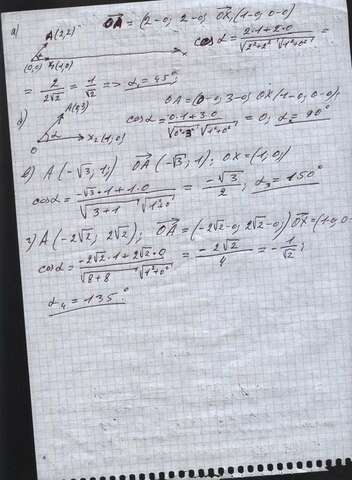 а) A(2,2) OA = (2-0; 2-0) OX (1-0; 0-0)
(0,0) X₁(1,0) x cos α = 2·1+2·0 / √2²+2² √1²+0² =
= 2/2√2 = 1/√2 => α₁ = 45°
б) A(0,3) OA = (0-0; 3-0) OX (1-0; 0-0);
O α X₂(1,0) cos α = 0·1+3·0 / √0²+3² √1²+0² = 0; α = 90°
в) A(-√3; 1;) OA (-√3; 1); OX = (1; 0)
cos α = -√3·1+1·0 / √3+1 √1²+0² = -√3/2; α₃ = 150°
г) A(-2√2; 2√2); OA = (-2√2-0; 2√2-0); OX = (1-0; 0-0)
cos α = -2√2·1+2√2·0 / √8+8 √1²+0² = -2√2/4 = -1/√2;
α₄ = 135°.